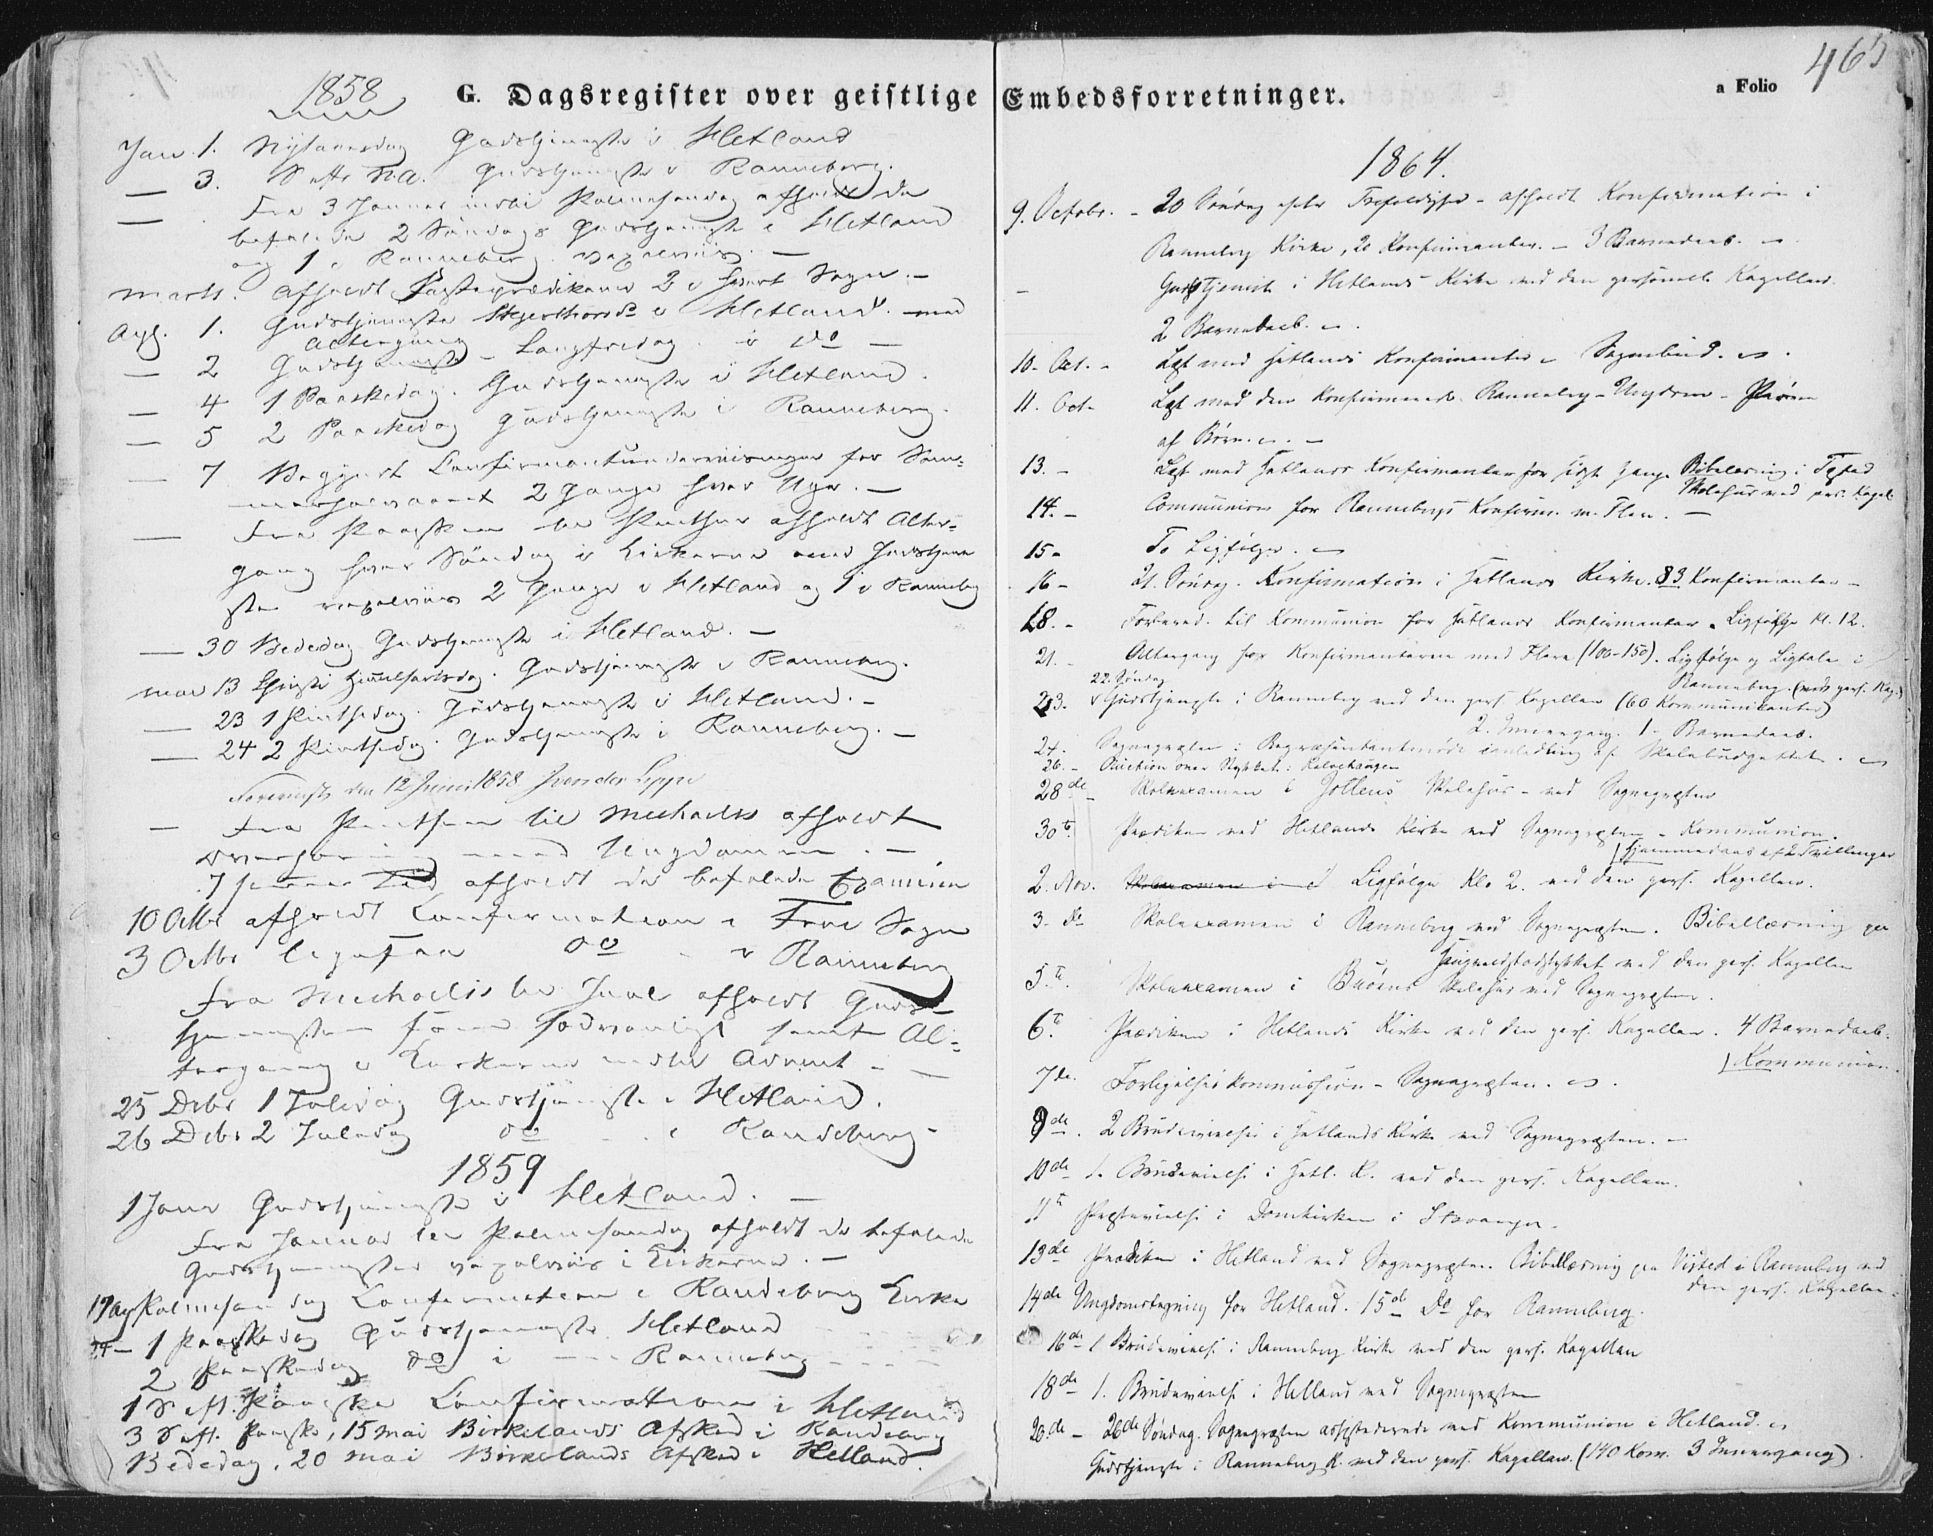 1858
G. Dagsregister over geistlige
Jan. 1. Nytaarsdag Gudstjeneste i Hetland
— 3. S. eft. N.A. Gudstjeneste i Randeberg.
— Fra 3 Januar indtil Palmesøndag afholdt de
befalede 2 Søndags Gudstjeneste i Hetland
og 1 i Randeberg vexelviis. —
Marts. Afholdt Fasteprædikener 2 i hvert Sogn. —
Apl. 1. Gudstjeneste Skjærthorsd. i Hetland. med
Altergang
— 2 Gudstjeneste Langfredag i do —
— 4 1 Paaskedag. Gudstjeneste i Hetland.
— 5 2 Paaskedag Gudstjeneste i Randeberg.
— 7 Begyndt Confirmantundervisningen for Som-
merhalvaaret 2 Gange hver Uge. —
— Fra Paasken til Pintse afholdt Alter-
gang hver Søndag i Kirkerne med Gudstjene
ste vexelviis 2 Gange i Hetland og 1 i Randeberg
— 30 Bededag Gudstjeneste i Hetland. —
Mai 13 Christi Himmelfartsdag. Gudstjeneste i Randeberg.
— 23 1 Pintsedag. Gudstjeneste i Hetland. —
— 24 2 Pintsedag. Gudstjeneste i Randeberg. —
Foreviist den 12 Juni 1858 J von der Lippe
— Fra Pintsen til Michaelis afholdt
Overhøring med Ungdommen. —
I samme Tid afholdt de befalede Examina
10 Octbr afholdt Confirmation i Frue Sogn
3 Octbr ligesaa do i Randeberg
Fra Michaelis til Juul afholdt Guds-
tjenesten som sædvanligt samt Al-
tergang i Kirkerne indtil Advent —
25 Decbr 1 Juledag Gudstjeneste i Hetland.
26 Decbr 2 Juledag do i Randeberg.
1859
1 Janr Gudstjeneste i Hetland. —
Fra Januar til Palmesøndag afholdt de befalede
Gudstjenester vexelviis i Kirkerne. —
17 Apl Palmesøndag Confirmation i Randeberg Kirke
24 — 1 Paaskedag Gudstjeneste Hetland
2 Paaskedag do i — Randeberg
1 S. eft. Paaske Confirmation i Hetland
3 S. eft. Paaske, 15 Mai Birkelands Afsked i Randeberg
Bededag, 20 Mai Birkelands Afsked i Hetland.
Embedsforretninger.
a Folio
465
1864.
9. Octobr. - 20 Søndag efter Trefoldighed - afholdt Konfirmation i
Randeberg Kirke, 20 Konfirmanter. — 3 Barnedaab.
— Gudstjeneste i Hetlands Kirke ved den personelle Kapellan.
2 Barnedaab.
10. Oct. - Læst med Hetlands Konfirmanter - Sognebud.
11. Oct. Læst med den konfirmerede Randeberg-Ungdom - Prøven
af Børn. —
13. - Læst med Hetlands Konfirmanter for sidste Gang. Bibellæsning i Tasted
Skolehus ved pers. Kapel.
14. - Communion for Randebergs Konfirm. m. Flere. —
15 - To Ligfølger.
16 - 21. Søndag. Konfirmation i Hetlands Kirke. 83 Konfirmanter —
18. - Forbered. til Kommunion for Hetlands Konfirmanter. Ligfølge Kl. 12.
21. - Altergang for Konfirmanterne med Flere (100-150). Ligfølge og Ligtale i
Randeberg. (ved pers. Kap.)
22. Søndag
23. Gudstjeneste i Randeberg ved den pers. Kapellan (60 Kommunikanter)
2. Innergang. 1. Barnedaab.
24. Sognepræsten i Repræsentantmøde i anledning af Skolebudgettet.
26. - Auction over
28de Skoleexamen i Jottens Skolehus - ved Sognepræsten
30te. Prædiken ved Hetlands Kirke ved Sognepræsten - Kommunion.
Hjemmedaab af 2 Tvillinger
2. Nov. Ligfølge Kl. 2. ved den pers. Kapellan.
3. de Skoleexamen i Randeberg ved Sognepræsten. Bibellæsning paa
ved den pers. Kapellan
5.te Skoleexamen i Buøens Skolehus ved Sognepræsten.
6te. Prædiken i Hetlands Kirke ved den pers. Kapellan. 4 Barnedaab.
Kommunion.
7de. Forligelseskommission - Sognepræsten.
9de. 2 Brudevielser i Hetlands Kirke ved Sognepræsten. —
10de 1. Brudevielse i Hetl. K. ved den pers. Kapellan.
11te Præstevielse i Domkirken i Stavanger.
13de Prædiken i Hetland ved Sognepræsten. Bibellæsning paa Visted i Randeberg ved
den pers. Kapellan.
14de Ungdomslæsning for Hetland. 15d Do for Randeberg.
16de 1 Brudevielse i Randeberg Kirke ved den pers. Kapellan
18de 1. Brudevielse i Hetland ved Sognepræsten
20.de - 26de Søndag. Sognepræsten ved Kommunion i Hetland.
Gudstjeneste i Randeberg K. ved den pers. Kapellan. (140 Kom. 3 Innergang).